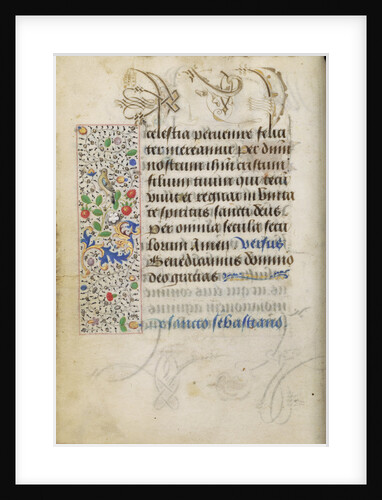 celestia peruenire felici
ter mereamur per dnm
nostrum ihm cristum
filium tuum qui tecu
viuit et regnat in vnita
te spiritus sancti deus
Per omnia secula secu
lorum Amen versus
Benedicamus domino
deo gracias
De sancto sebastiano